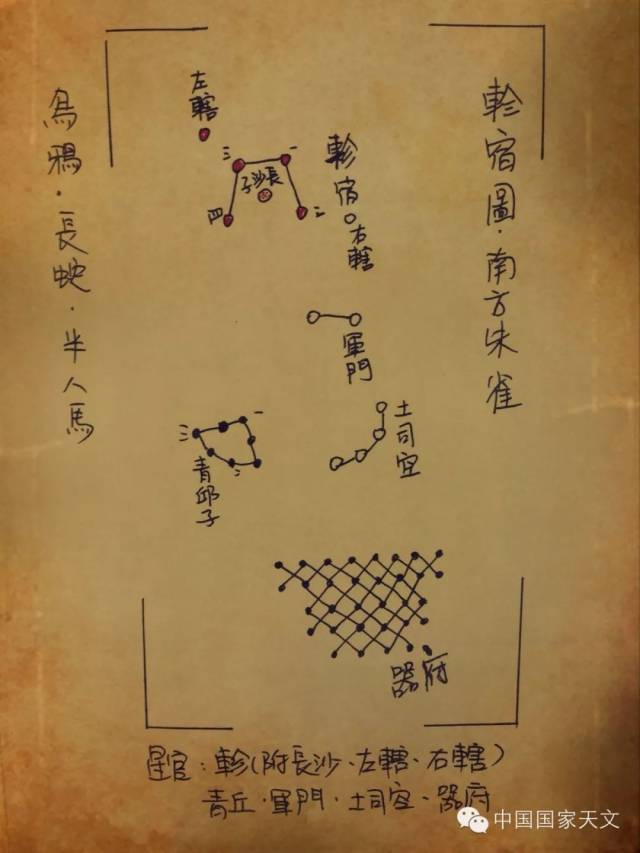 軫宿圖·南方朱雀
烏鴉·長蛇·半人馬
左轄
三
一
長沙子
四
二
軫宿
右轄
軍門
土司空
一
三
二
青邱子
器府
星官:軫(附長沙、左轄、右轄)
青丘·軍門·土司空·器府
中国国家天文